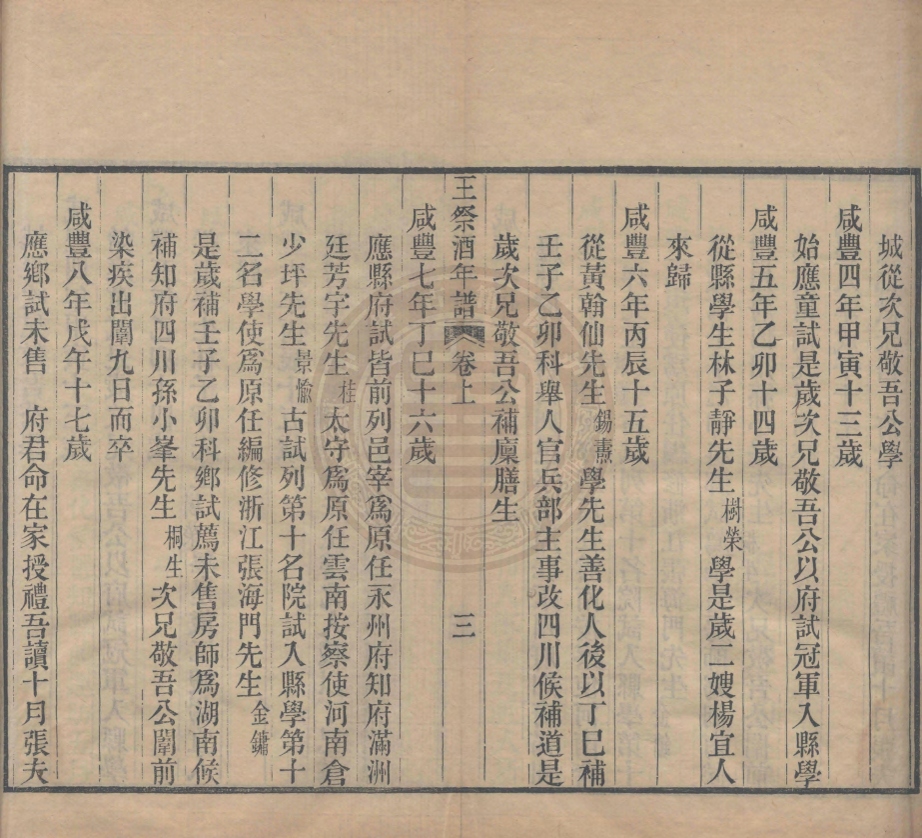 城從次兄敬吾公學
咸豐四年甲寅十三歲
始應童試是歲次兄敬吾公以府試冠軍入縣學
咸豐五年乙卯十四歲
從縣學生林子靜先生樹榮學是歲二嫂楊宜人
來歸
咸豐六年丙辰十五歲
從黃翰仙先生錫燾學先生善化人後以丁巳補
壬子乙卯科舉人官兵部主事改四川候補道是
歲次兄敬吾公補廩膳生
王祭酒年譜 卷上 三
咸豐七年丁巳十六歲
應縣府試皆前列邑宰爲原任永州府知府滿洲
廷芳宇先生桂太守爲原任雲南按察使河南倉
少坪先生景愉古試列第十名院試入縣學第十
二名學使爲原任編修浙江張海門先生金鏞
是歲補壬子乙卯科鄉試薦未售房師爲湖南候
補知府四川孫小峯先生桐生次兄敬吾公闈前
染疾出闈九日而卒
咸豐八年戊午十七歲
應鄉試未售 府君命在家授禮吾讀十月張夫